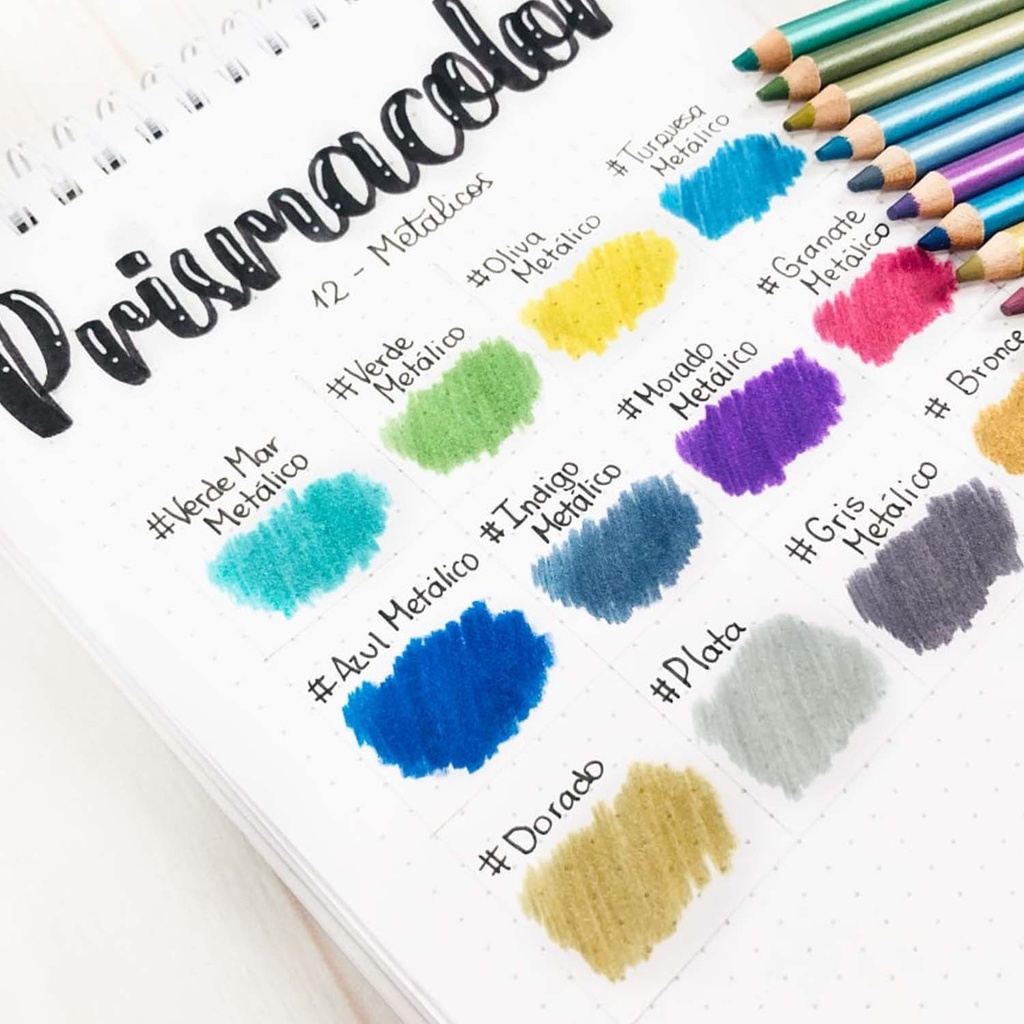 Prismacolor
12 - Metálicos
#Verde Mar
Metálico
#Verde
Metálico
#Oliva
Metálico
#Turquesa
Metálico
#Azul Metálico
#Indigo
Metálico
#Morado
Metálico
# Granate
Metálico
#Dorado
#Plata
#Gris
Metálico
# Bronce